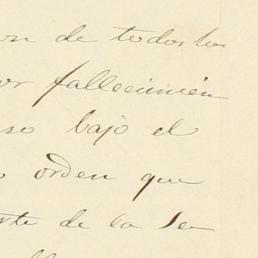 on de todos los
or fallecimien
so bajo el
o orden que
ste de la Se